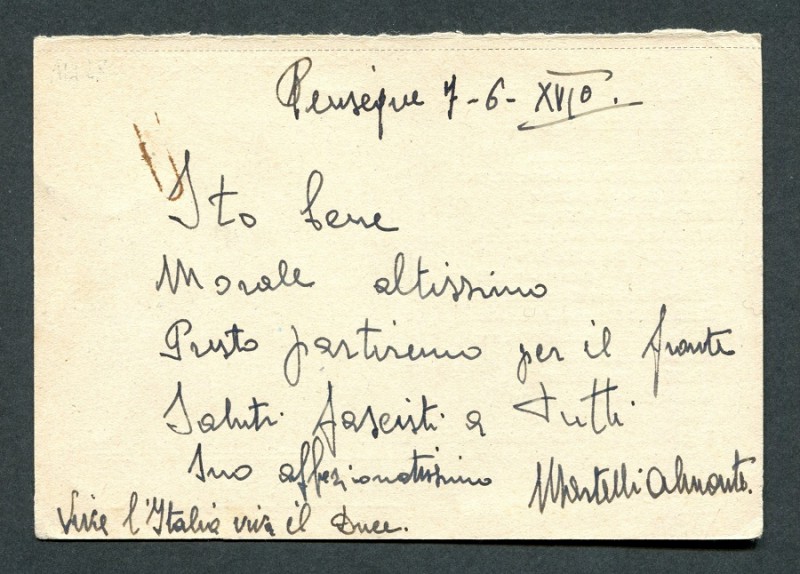 7-6-XVIO.
Sto bene
Morale altissimo
Presto partiremo per il fronte
Saluti fascisti a tutti
Suo affezionatissimo Martelli
Viva l'Italia viva il Duce.